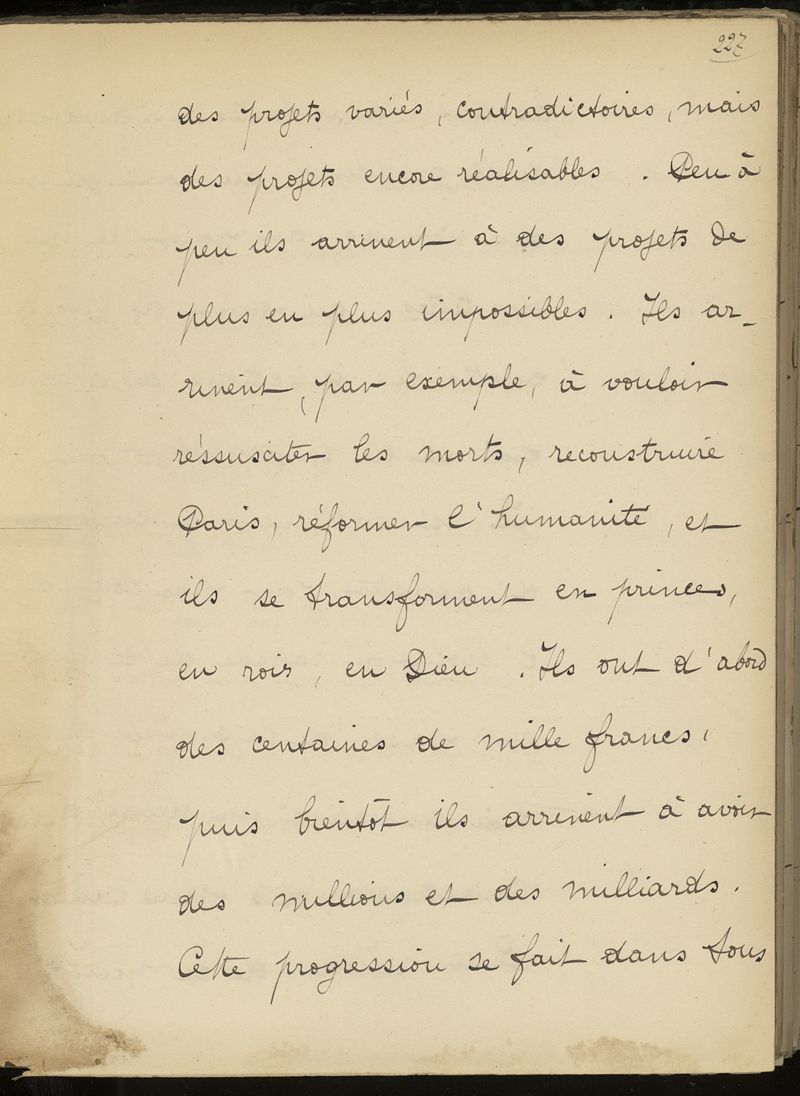 227
des projets variés, contradictoires, mais
des projets encore réalisables. Peu à
peu ils arrivent à des projets de
plus en plus impossibles. Ils ar-
rivent, par exemple, à vouloir
réssusciter les morts, reconstruire
Paris, réformer l'humanité, et
ils se transforment en princes,
en rois, en Dieu. Ils ont d'abord
des centaines de mille francs,
puis bientôt ils arrivent à avoir
des millions et des milliards.
Cette progression se fait dans tous